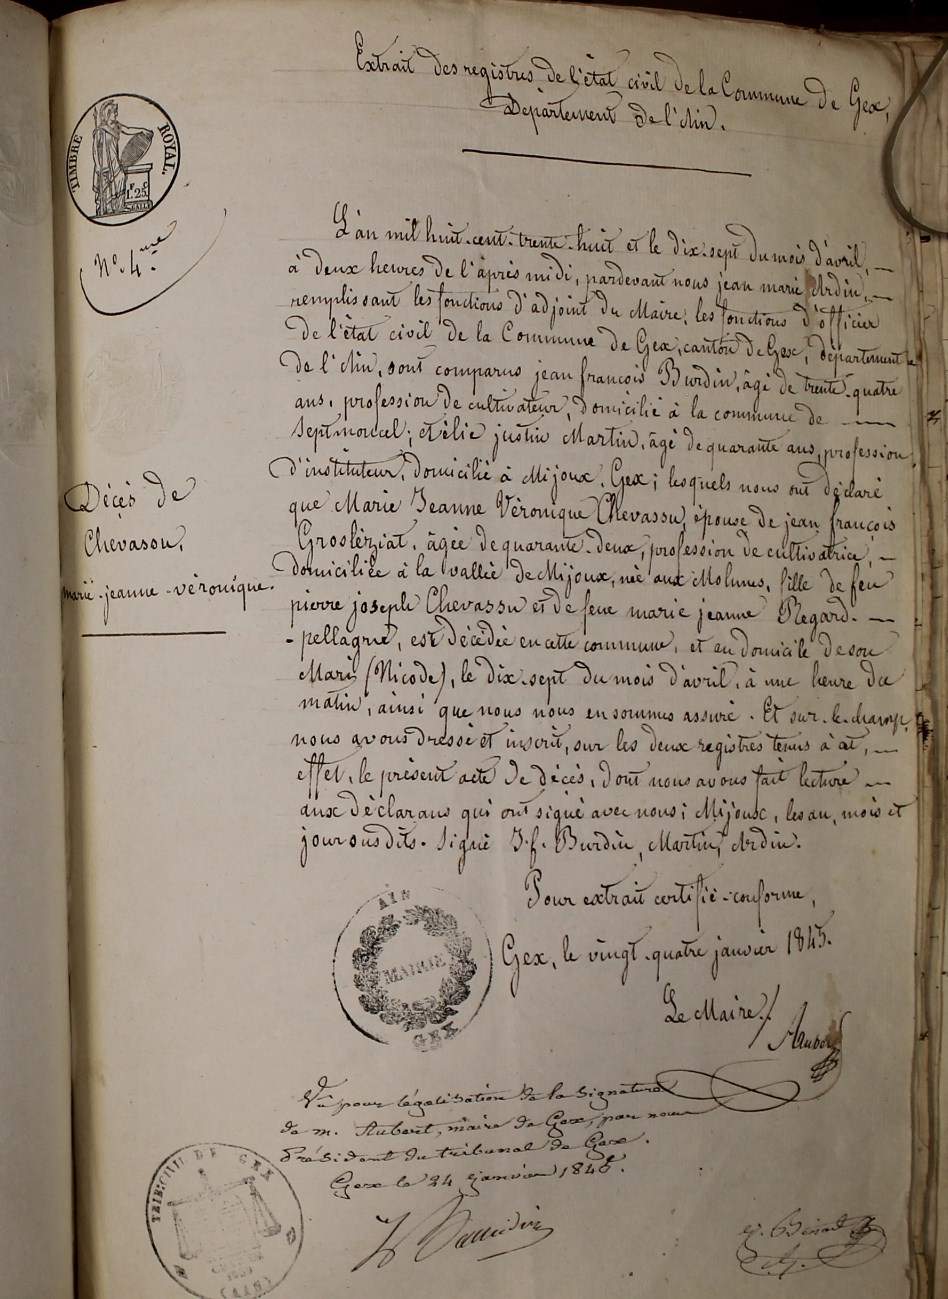 Extrait des registres de l'état civil de la Commune de Gex,
Département de l'Ain.
TIMBRE ROYAL.
1F 25C
N°. 4.me
L'an mil huit-cent-trente-huit et le dix-sept du mois d'avril,
à deux heures de l'après midi, pardevant nous jean marie Ardin,
remplissant les fonctions d'adjoint du Maire; les fonctions d'officier
de l'état civil de la Commune de Gex, canton de Gex, département
de l'Ain, sont comparus jean françois Burdin, âgé de trente-quatre
ans, profession de cultivateur, domicilié à la commune de
Septmoncel; et élie justin Martin, âgé de quarante ans, profession
d'instituteur, domicilié à Mijoux, Gex; lesquels nous ont déclaré
que Marie Jeanne Véronique Chevassu, épouse de jean françois
Groslézziat, âgée de quarante-deux, profession de cultivatrice,
domiciliée à la vallée de Mijoux, née aux Molunes, fille de feu
pierre joseph Chevassu et de feue marie jeanne Regard-
-pellagrue, est décédée en cette commune, et en domicile de son
Mari (Nicode), le dix-sept du mois d'avril, à une heure du
matin, ainsi que nous nous en sommes assuré. Et sur-le-champ,
nous avons dressé et inscrit, sur les deux registres tenus à cet,
effet, le présent acte de décès, dont nous avons fait lecture
aux déclarans qui ont signé avec nous; Mijoux, les an, mois et
jour susdits. Signé J. f. Burdin, Martin, Ardin.
Décès de
Chevassu,
marie-jeanne-véronique.
Pour extrait certifié-conforme,
Gex, le vingt-quatre janvier 1845.
Le Maire,
Aubert
AIN
MAIRIE
GEX
Vu pour légalisation de la signature
de m. Aubert, maire de Gex, par nous
Président du tribunal de Gex.
Gex le 24 janvier 1845.
TRIB: CIVIL DE GEX
(AIN)